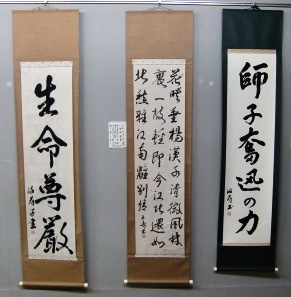 師子奮迅の力
花映垂楊漢水清微風林
裏一枝軽即今江北還如
此愁殺江南離別情
生命尊厳